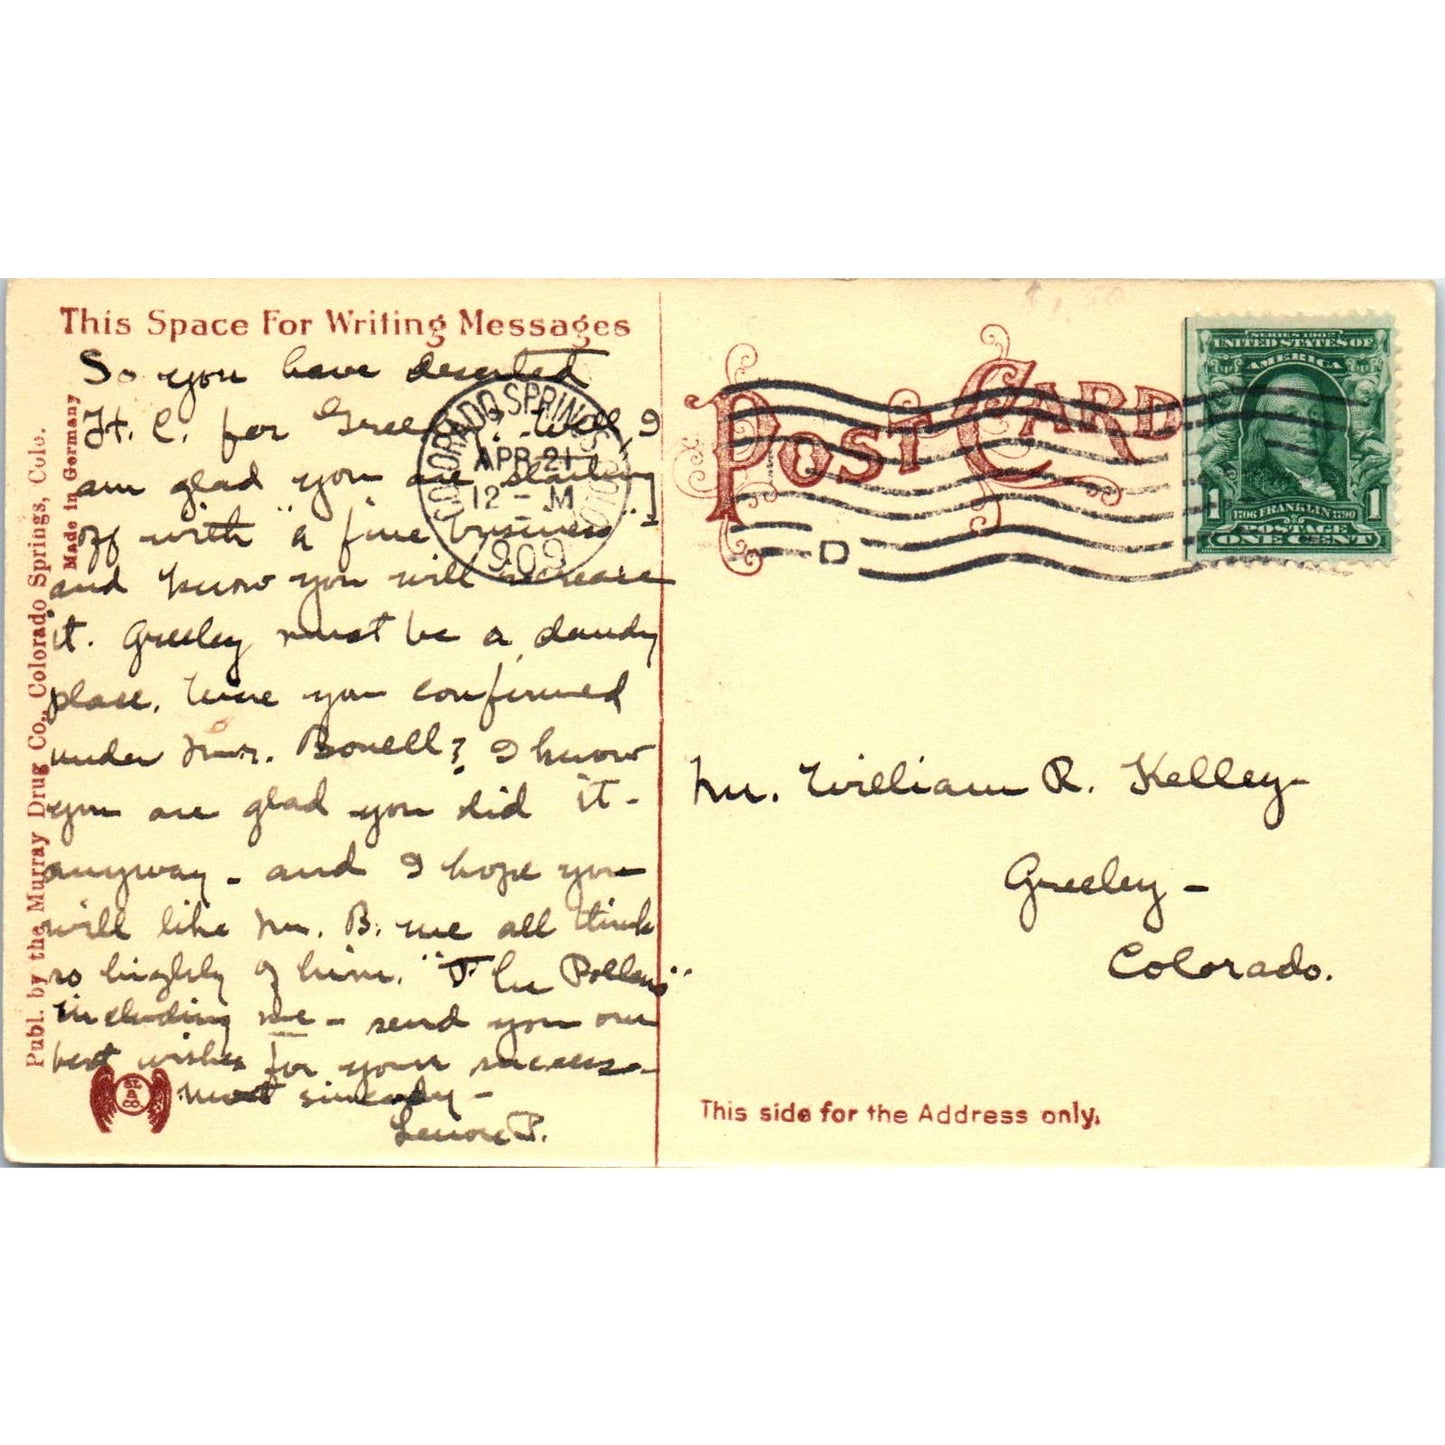 This Space For Writing Messages
So you have deserted
Ft. C. for Greeley? Well, I
am glad you are starting
off with "a fine business"
and know you will increase
it. Greeley must be a dandy
place. Were you confirmed
under Mr. Bonell? I know
you are glad you did it -
anyway - and I hope you
will like Mr. B. we all think
so highly of him. "The Pollens"
including me - send you our
best wishes for your success -
Most sincerely -
Lenore P.
Publ. by the Murray Drug Co., Colorado Springs, Colo.
Made in Germany
COLORADO SPRINGS
APR 21
12 - M
1909
COLO.
POST CARD
D
SERIES 1902
UNITED STATES OF
AMERICA
1 1
1706 FRANKLIN 1790
POSTAGE
ONE CENT
Mr. William R. Kelley -
Greeley -
Colorado.
This side for the Address only.